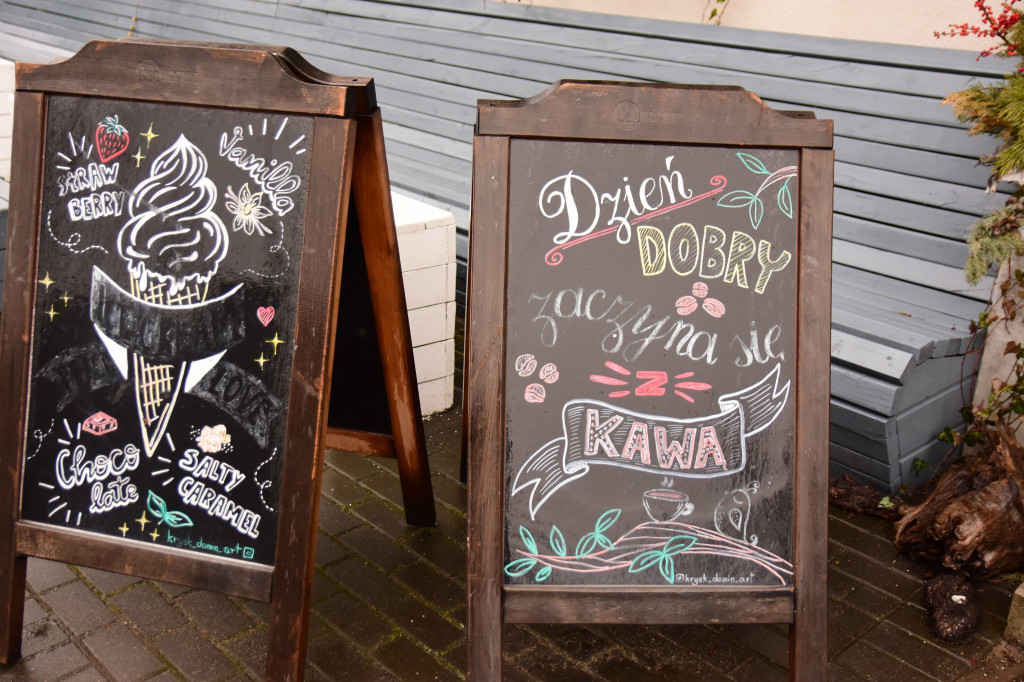 STRAW
BERRY
Vanilla
LOVE
Choco
late
SALTY
CARAMEL
krysk_domin_art
Dzień
DOBRY
zaczyna się
Z
KAWA
@krysk_domin_art